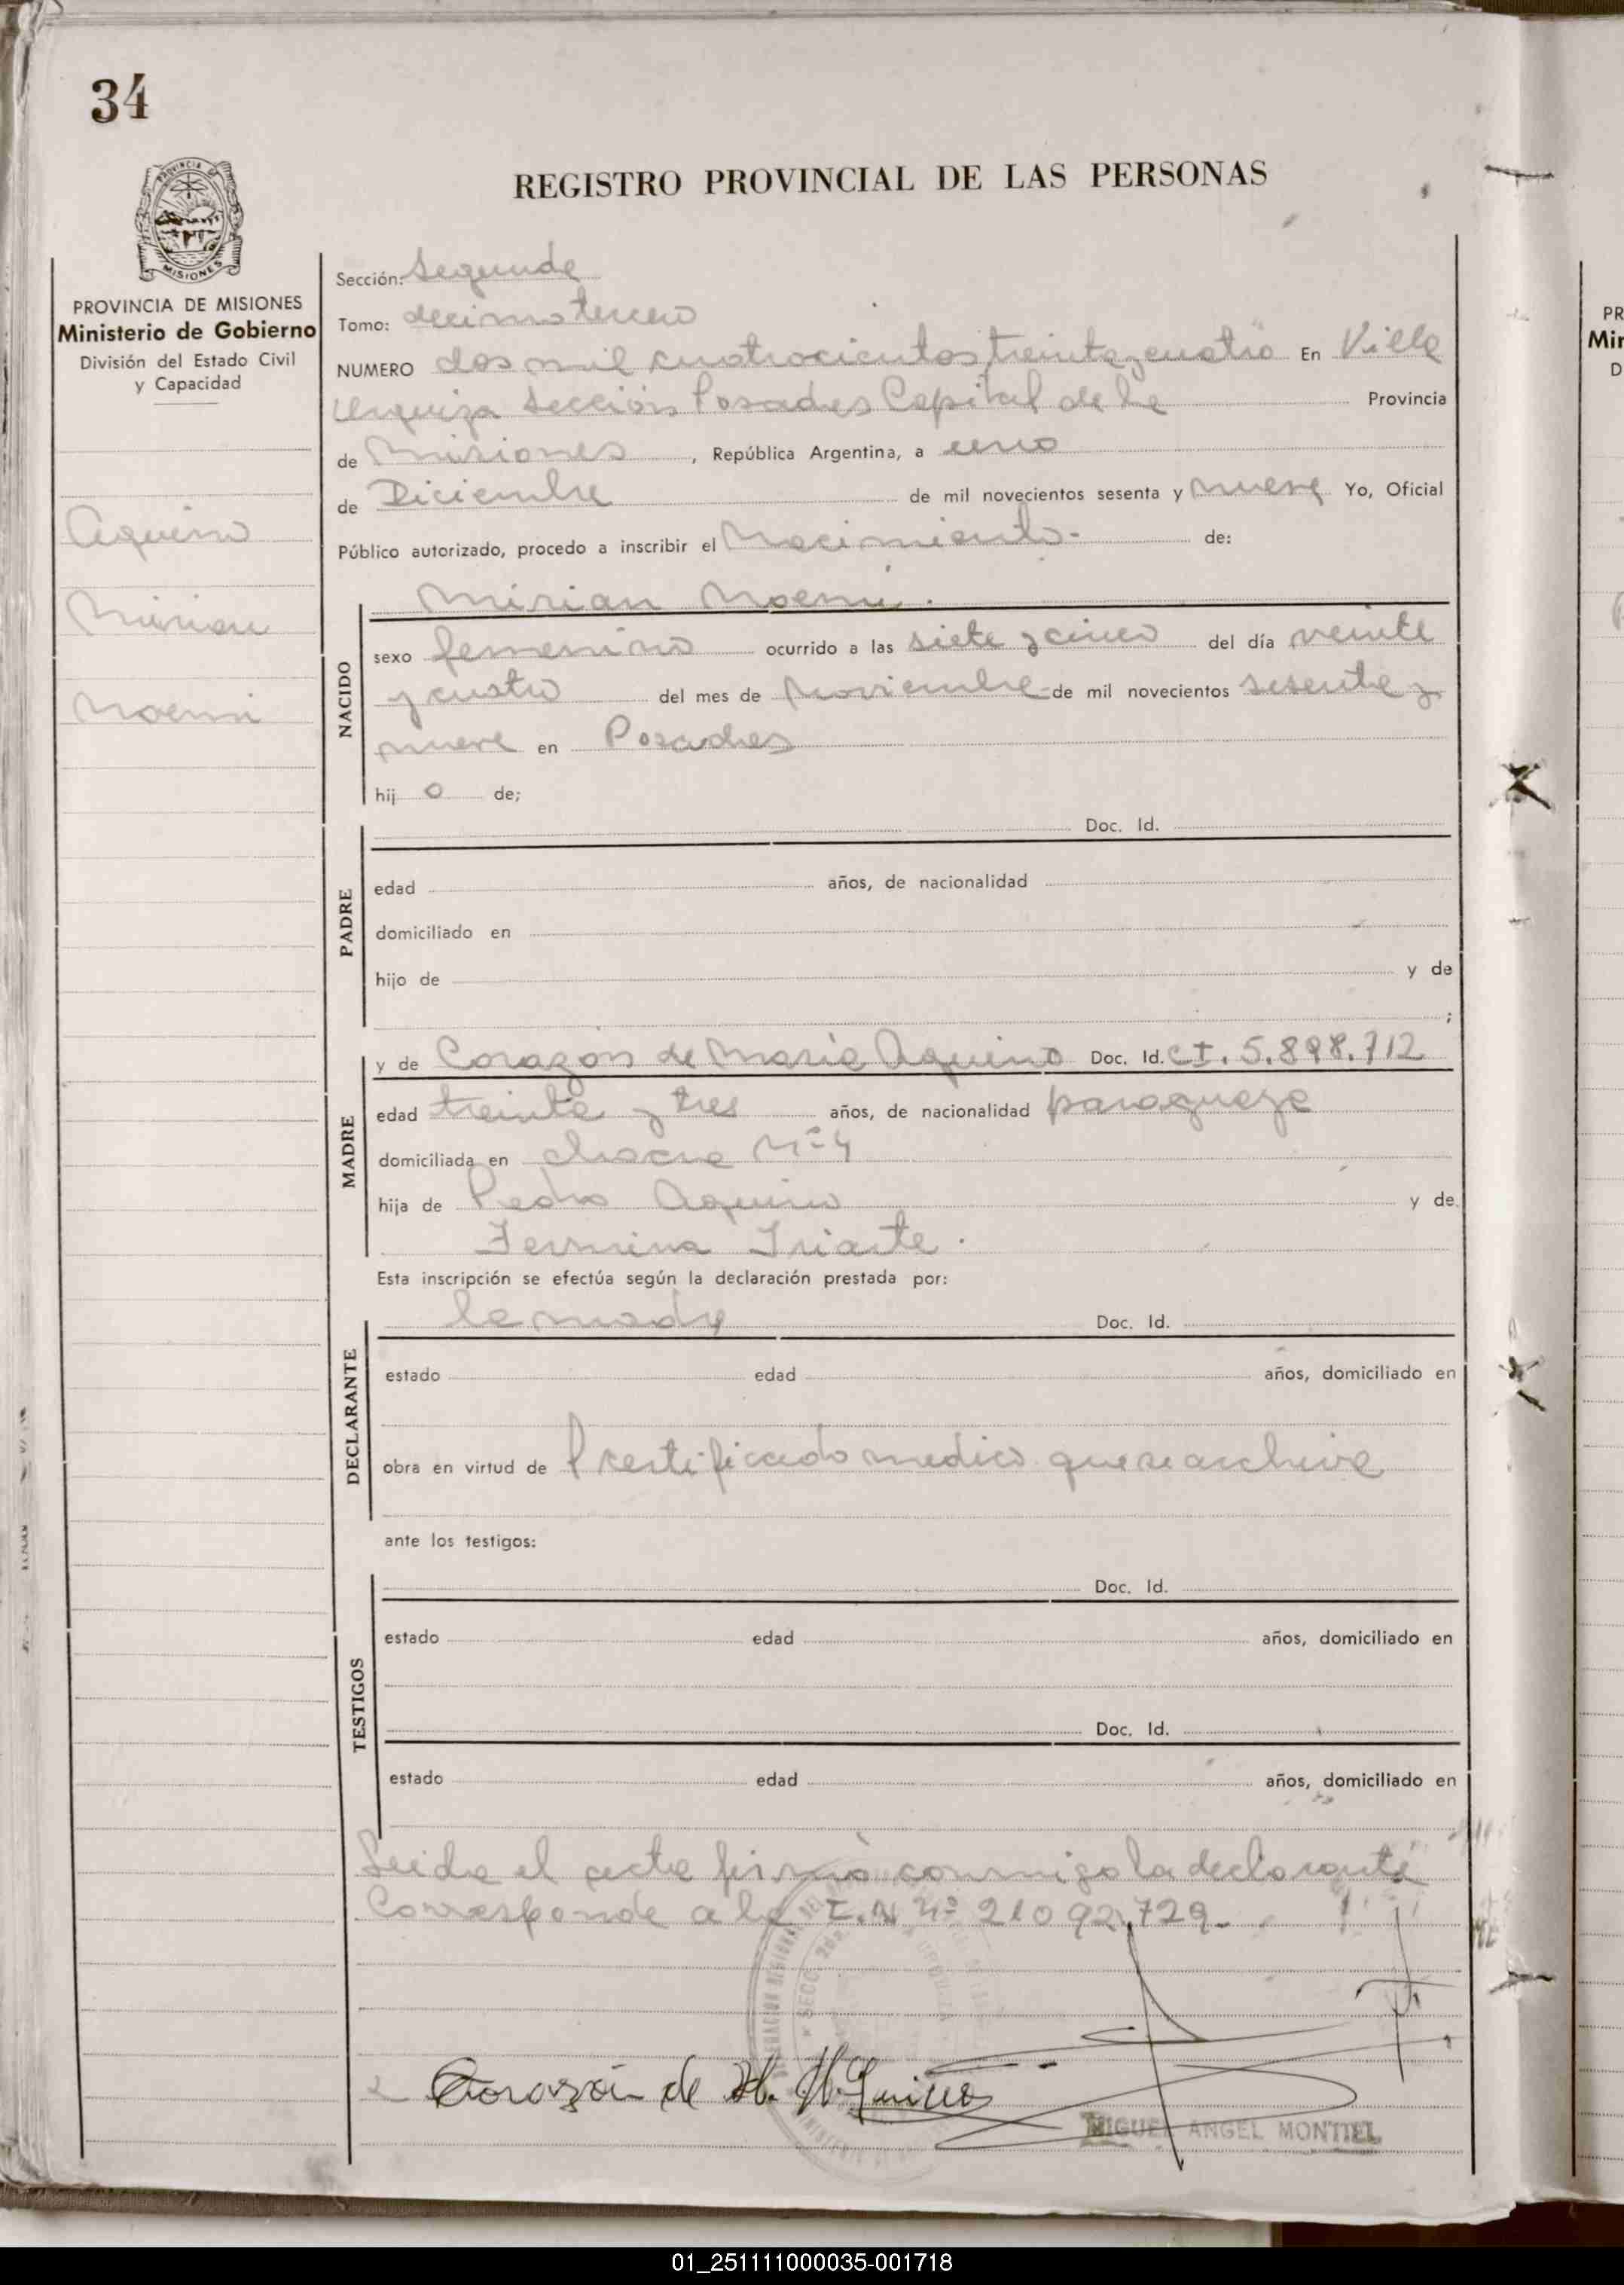 34
REGISTRO PROVINCIAL DE LAS PERSONAS
PROVINCIA DE
MISIONES
PROVINCIA DE MISIONES
Ministerio de Gobierno
División del Estado Civil
y Capacidad
Aquino
Mirian
Noemi
Sección: Segunda
Tomo: decimo tercero
NUMERO dos mil cuatrocientos treinta y cuatro En Villa
Urquiza Sección Posadas Capital de la Provincia
de Misiones, República Argentina, a uno
de Diciembre de mil novecientos sesenta y nueve Yo, Oficial
Público autorizado, procedo a inscribir el Nacimiento- de:
Mirian Noemi.
NACIDO
sexo femenino ocurrido a las siete y cinco del día veinte
y cuatro del mes de Noviembre de mil novecientos sesenta y
nueve en Posadas
hij o de;
PADRE
Doc. Id.
edad años, de nacionalidad
domiciliado en
hijo de y de
;
MADRE
y de Corazon de Maria Aquino Doc. Id. CI. 5.898.712
edad treinta y tres años, de nacionalidad paraguaya
domiciliada en chacra Nº 4
hija de Pedro Aquino y de
Fermina Iriarte.
Esta inscripción se efectúa según la declaración prestada por:
DECLARANTE
la madre Doc. Id.
estado edad años, domiciliado en
obra en virtud de certificado medico que se archiva
ante los testigos:
TESTIGOS
Doc. Id.
estado edad años, domiciliado en
Doc. Id.
estado edad años, domiciliado en
Leida el acta firmó conmigo la declarante
Corresponde a la I.N Nº 21092.729-
SECC.
URQUIZA
Corazón de M. Aquino
MIGUEL ANGEL MONTIEL
PR
Min
D
01_251111000035-001718